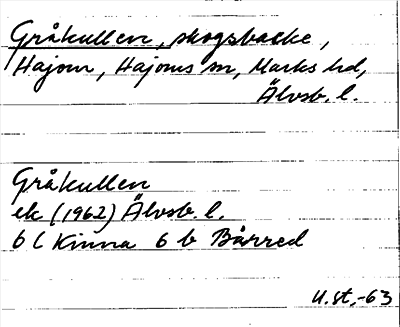 Gråkullen, skogsbacke,
Hajom, Hajoms sn, Marks hd,
Älvsb. l.
Gråkullen
ek (1962) Älvsb. l.
6 C Kinna 6 b Bårred
U.st,-63